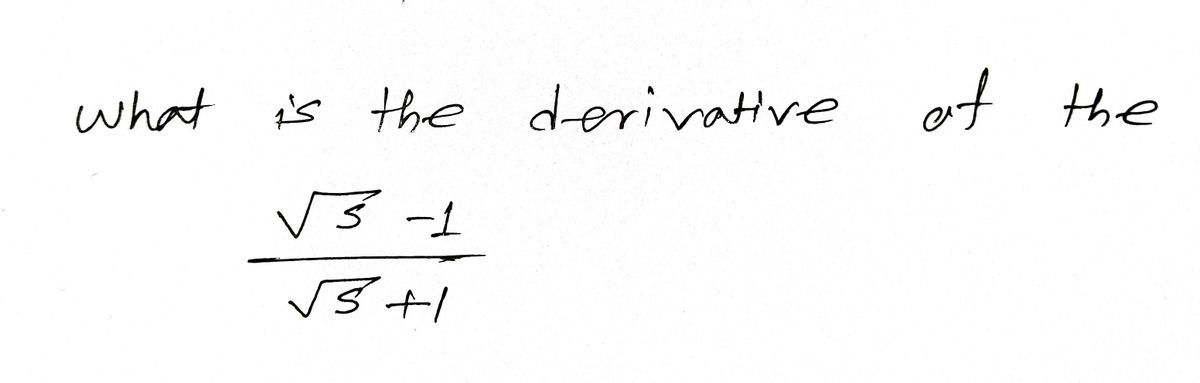 what is the derivative of the
√s -1
√s +1